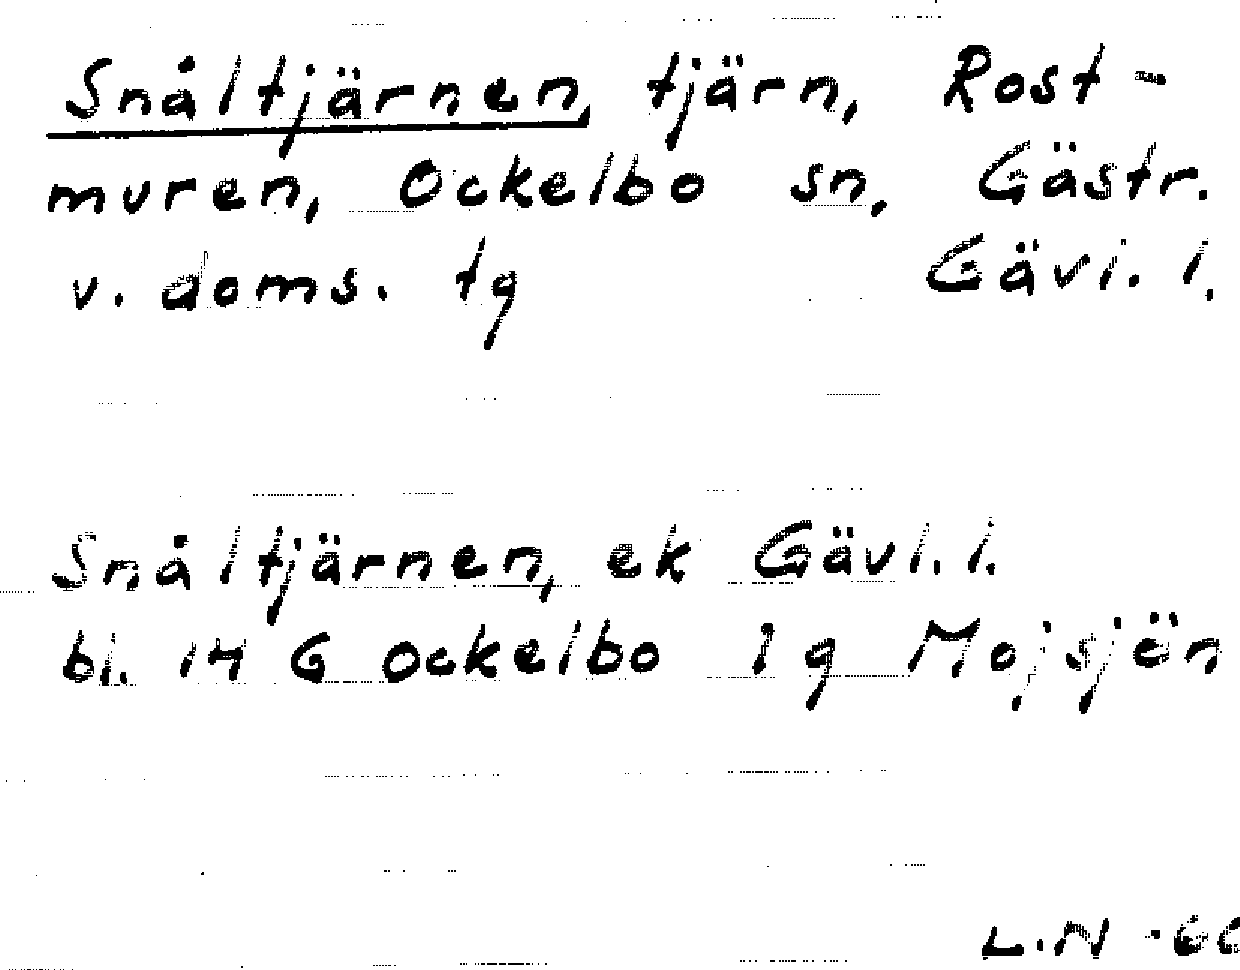 Snåltjärnen, tjärn, Rost-
muren, Ockelbo sn, Gästr.
v. doms. tg Gävl. l.
Snåltjärnen, ek Gävl. l.
bl. 14 G Ockelbo 1 g Mojsjön
L.N -66